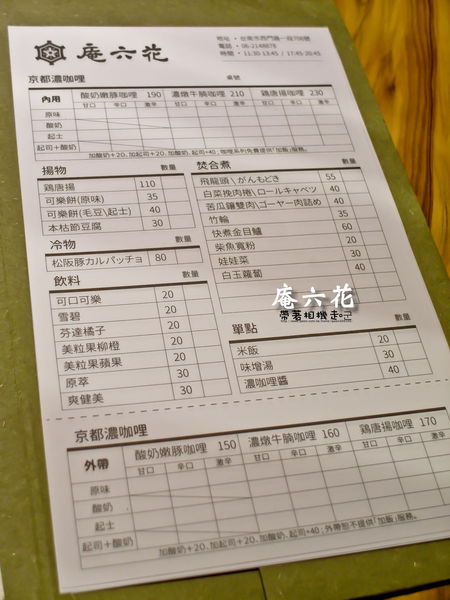 庵六花
地址・台南市西門路一段708號
電話・06-2148878
時間・11:30-13:45 / 17:45-20:45
京都濃咖哩 桌號
內用 酸奶嫩豚咖哩 190 濃燉牛腩咖哩 210 鶏唐揚咖哩 230
甘口 辛口 激辛 甘口 辛口 激辛 甘口 辛口 激辛
原味
酸奶
起士
起司+酸奶
加酸奶+20、加起司+20、加酸奶、起司+40；咖哩系列免費提供「加飯」服務。
揚物 數量
鶏唐揚 110
可樂餅(原味) 35
可樂餅(毛豆\起士) 40
本枯節豆腐 30
冷物 數量
松阪豚カルパッチョ 80
飲料 數量
可口可樂 20
雪碧 20
芬達橘子 20
美粒果柳橙 20
美粒果蘋果 20
原萃 30
爽健美 30
焚合煮 數量
飛龍頭\がんもどき 55
白菜挽肉捲\ロールキャベツ 40
苦瓜鑲雙肉\ゴーヤー肉詰め 40
竹輪 35
快煮金目鱸 60
柴魚寬粉 20
娃娃菜 30
白玉蘿蔔 40
庵六花
帶著相機走
單點 數量
米飯 20
味增湯 30
濃咖哩醬 40
京都濃咖哩
外帶 酸奶嫩豚咖哩 150 濃燉牛腩咖哩 160 鶏唐揚咖哩 170
甘口 辛口 激辛 甘口 辛口 激辛 甘口 辛口 激辛
原味
酸奶
起士
起司+酸奶
加酸奶+20、加起司+20、加酸奶、起司+40；外帶恕不提供「加飯」服務。